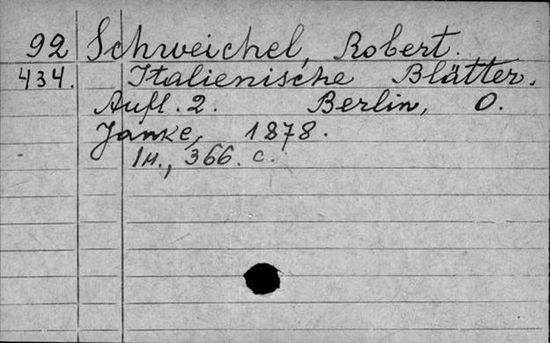 92 Schweichel, Robert.
434. Italienische Blätter.
Aufl. 2. Berlin, O.
Janke, 1878.
1н., 366. с.